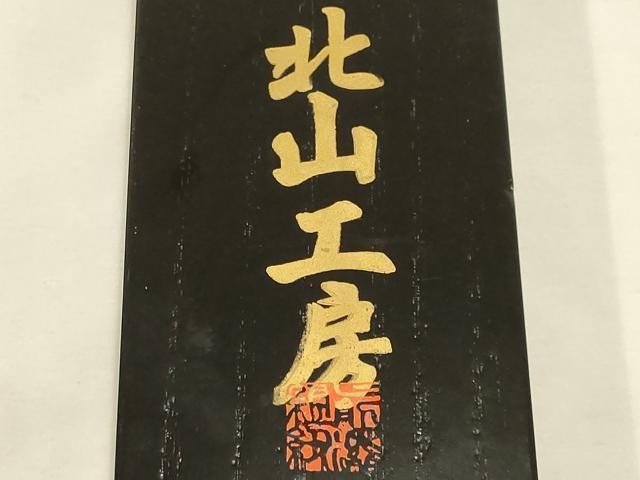 北山工房